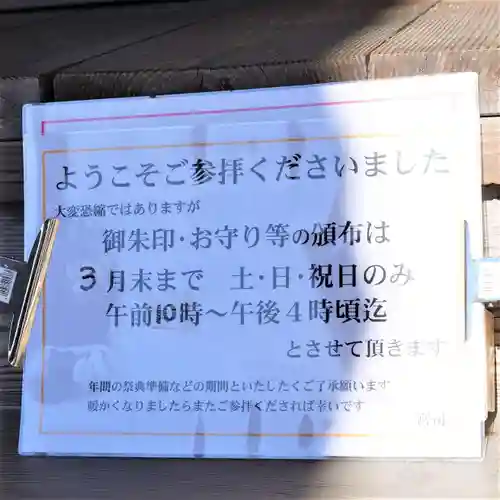 ようこそご参拝くださいました
大変恐縮ではありますが
御朱印・お守り等の頒布は
3月末まで 土・日・祝日のみ
午前10時～午後4時頃迄
とさせて頂きます
年間の祭典準備などの期間といたしたくご了承願います
暖かくなりましたらまたご参拝くだされば幸いです